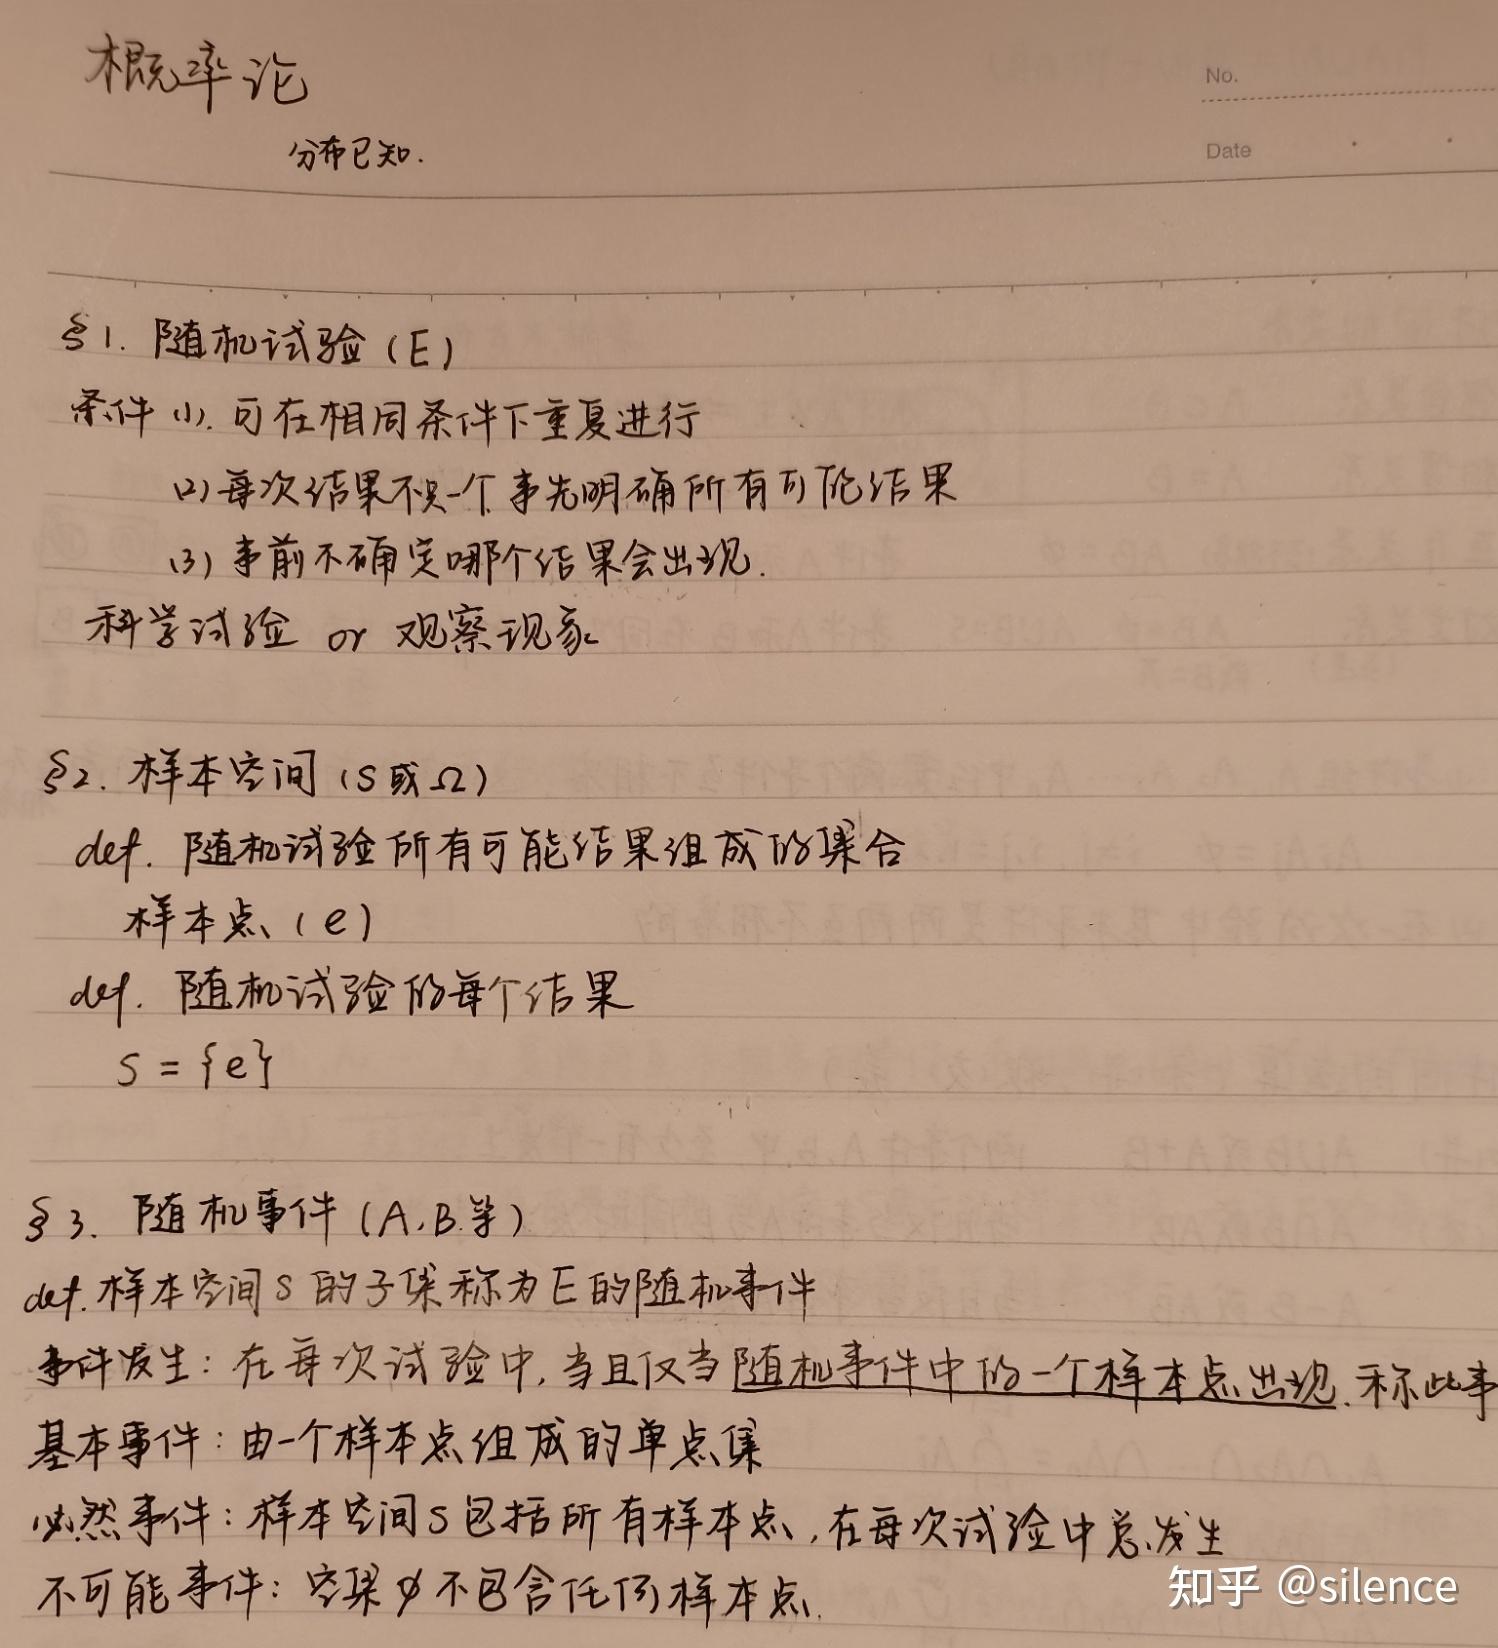 概率论
No.
分布已知.
Date
§1. 随机试验(E)
条件 (1). 可在相同条件下重复进行
(2) 每次结果不只一个 事先明确所有可能结果
(3) 事前不确定哪个结果会出现.
科学试验 or 观察现象
§2. 样本空间(S或Ω)
def. 随机试验所有可能结果组成的集合
样本点(e)
def. 随机试验的每个结果
S = {e}
§3. 随机事件(A,B.等)
def. 样本空间S的子集称为E的随机事件
事件发生: 在每次试验中, 当且仅当随机事件中的一个样本点出现, 称此事
基本事件: 由一个样本点组成的单点集
必然事件: 样本空间S包括所有样本点, 在每次试验中总发生
不可能事件: 空集∅不包含任何样本点.
知乎 @silence